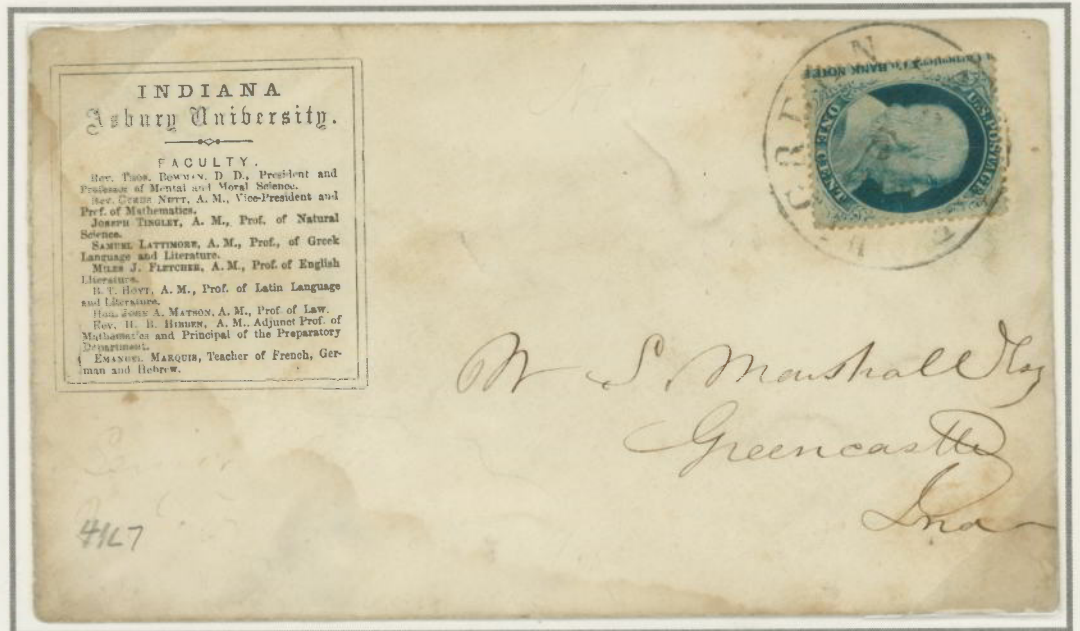 INDIANA
Asbury University.
FACULTY.
Rev. Thos. Bowman, D. D., President and
Professor of Mental and Moral Science.
Rev. Cyrus Nutt, A. M., Vice-President and
Prof. of Mathematics.
Joseph Tingley, A. M., Prof. of Natural
Science.
Samuel Lattimore, A. M., Prof., of Greek
Language and Literature.
Miles J. Fletcher, A. M., Prof. of English
Literature.
B. T. Hoyt, A. M., Prof. of Latin Language
and Literature.
Hon. John A. Matson, A. M., Prof. of Law.
Rev. H. B. Hibben, A. M., Adjunct Prof. of
Mathematics and Principal of the Preparatory
Department.
Emanuel Marquis, Teacher of French, Ger-
man and Hebrew.
BANK NOTE
U.S. POSTAGE
ONE CENT
GREEN
W S. Marshall Esq
Greencastle
Ind